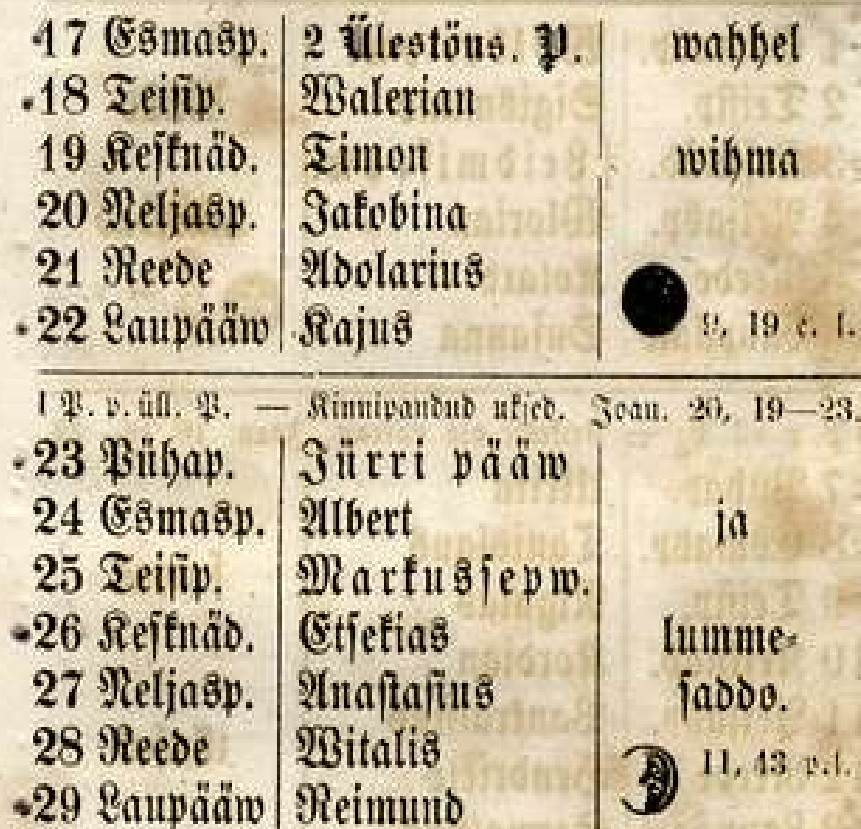 17 Esmasp. 2 Ülestöus. P. wahhel
18 Teisip. Walerian
19 Kesknäd. Timon wihma
20 Neljasp. Jakobina
21 Reede Adolarius
22 Laupääw Kajus 9, 19 e. l.
1 P. p. üll. P. — Kinnipandud uksed. Joan. 20, 19—23.
23 Pühap. Jürri pääw
24 Esmasp. Albert ja
25 Teisip. Markussepw.
26 Kesknäd. Etsekias lumme-
27 Neljasp. Anastasius saddo.
28 Reede Witalis
29 Laupääw Reimund 11, 43 p. l.